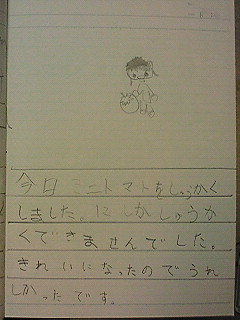 今日ミニトマトをしゅうかく
しました。にしかしゅうか
くできませんでした。
きれいになったのでうれ
しかったです。